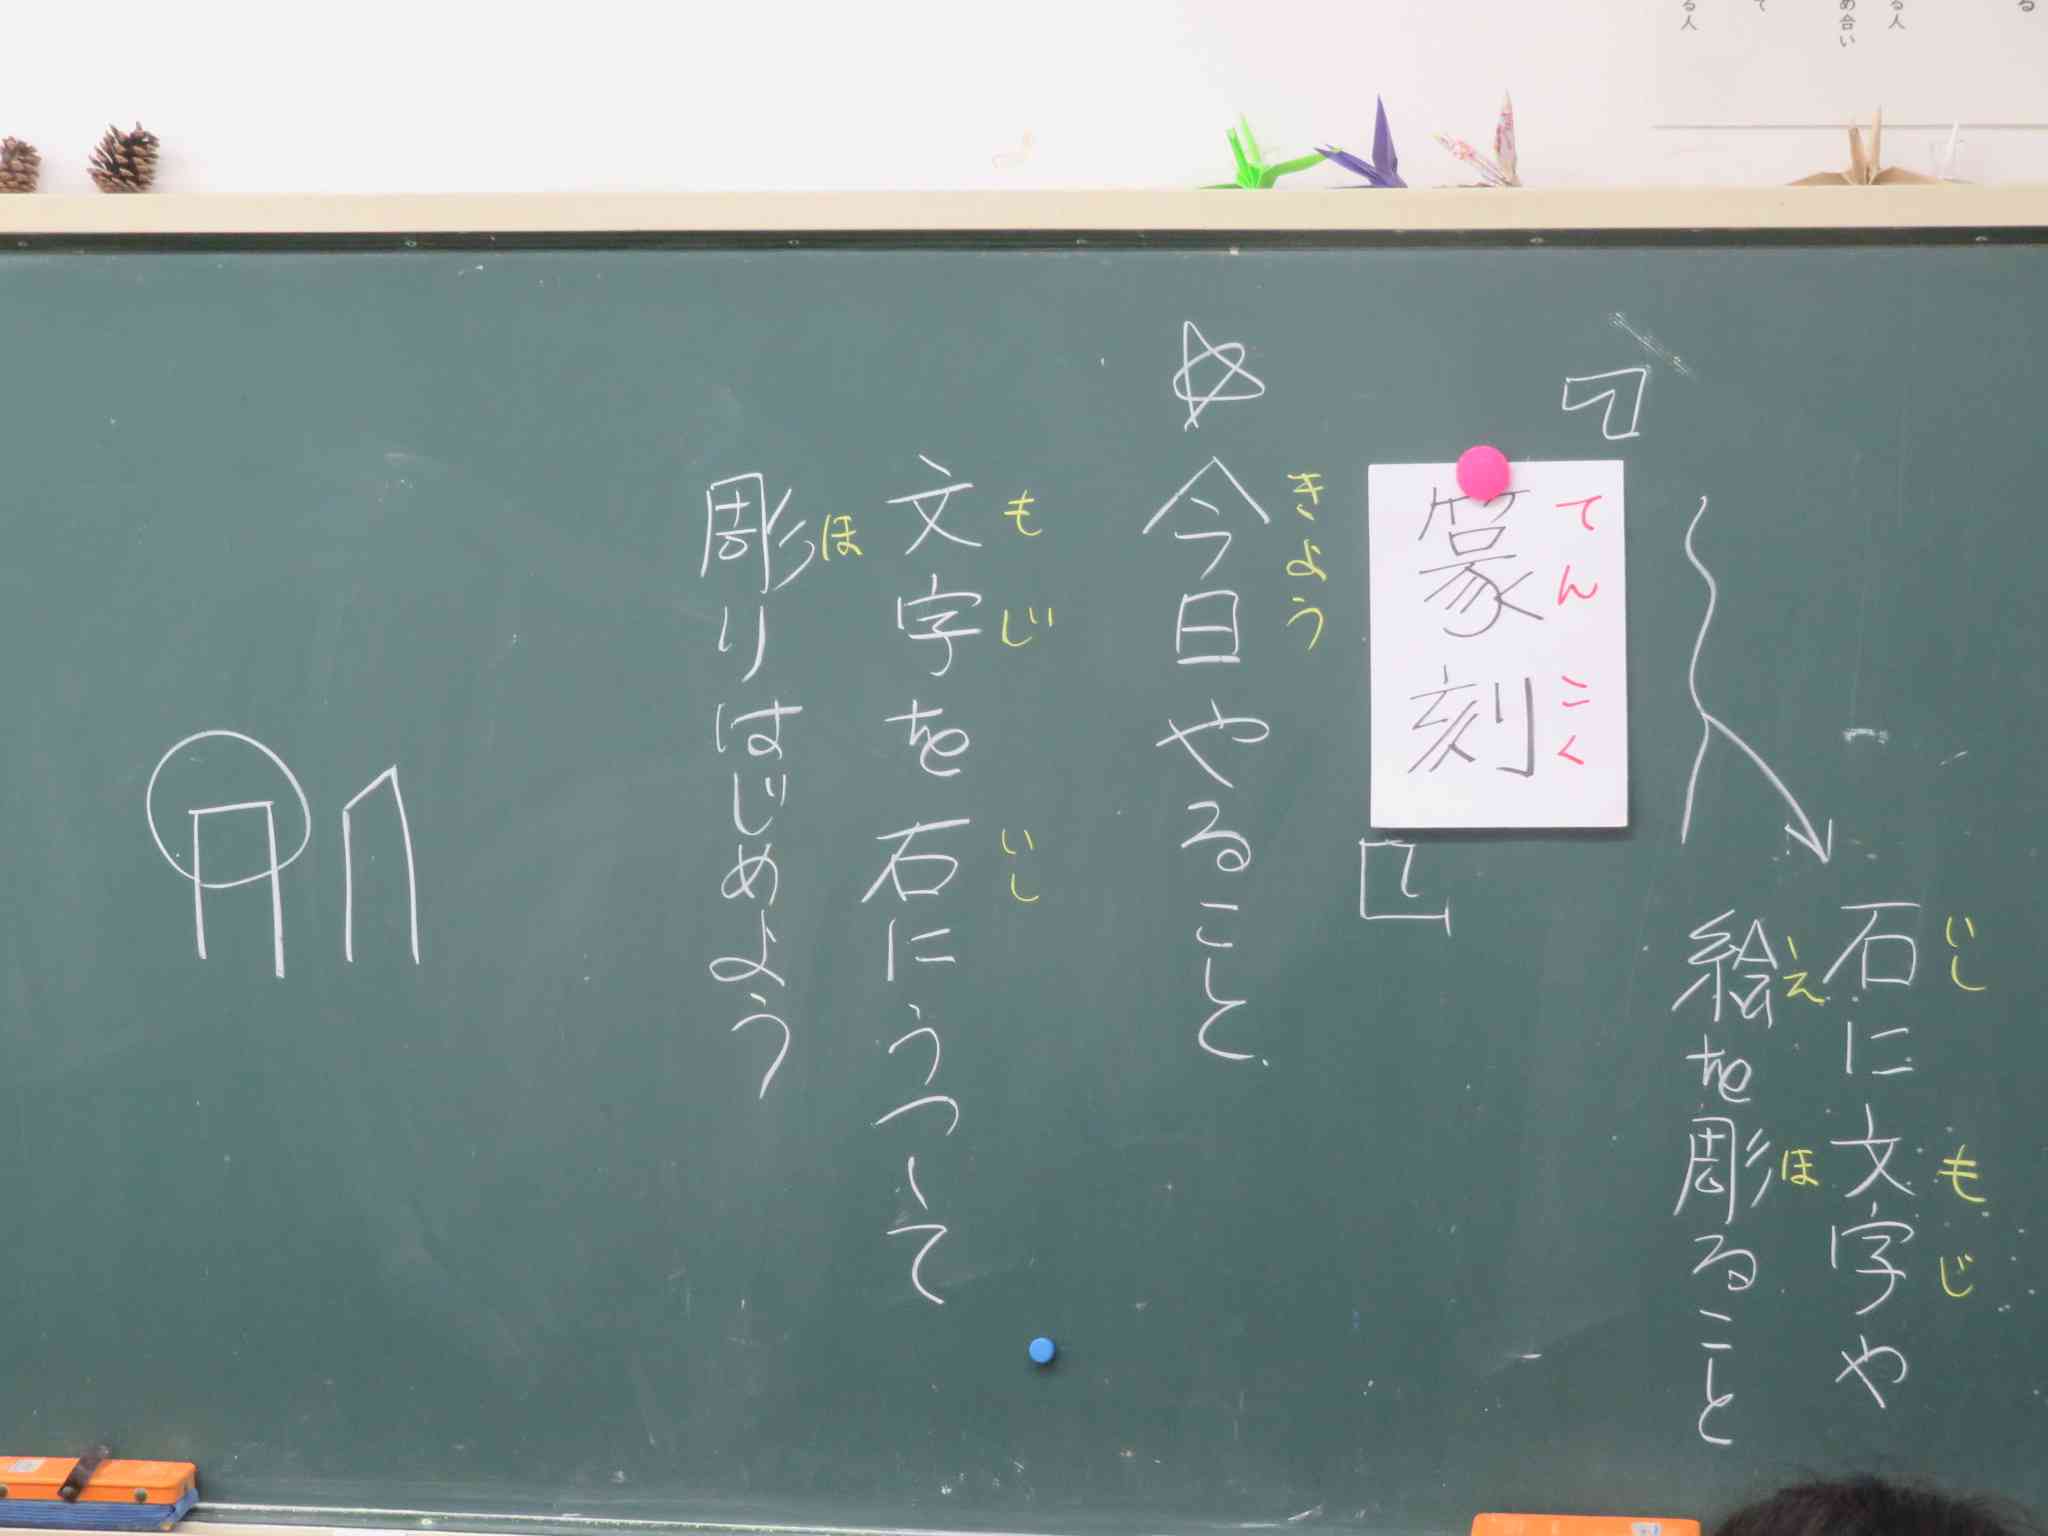 る
る人
め合い
て
る人
いし
石に文字や
もじ
え
絵を彫ること
ほ
『篆刻』
てんこく
きょう
☆今日やること
もじ
いし
文字を石にうつして
ほ
彫りはじめよう